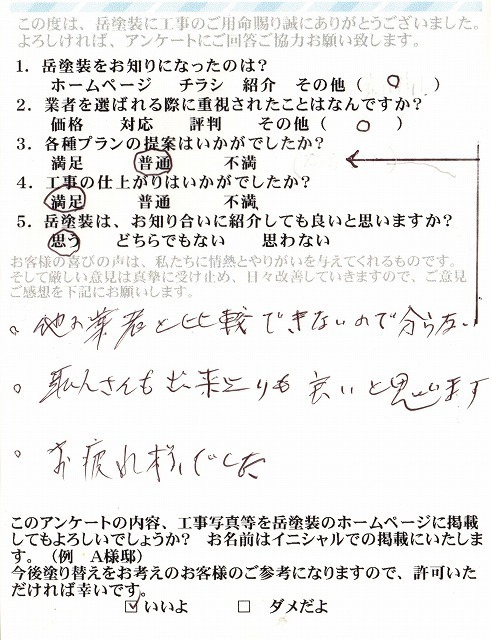 この度は、岳塗装に工事のご用命賜り誠にありがとうございました。
よろしければ、アンケートにご回答ご協力お願い致します。
1．岳塗装をお知りになったのは？
ホームページ　チラシ　紹介　その他（ ○ ）
2．業者を選ばれる際に重視されたことはなんですか？
価格　対応　評判　その他（ ○ ）
3．各種プランの提案はいかがでしたか？
満足　普通　不満
4．工事の仕上がりはいかがでしたか？
満足　普通　不満
5．岳塗装は、お知り合いに紹介しても良いと思いますか？
思う　どちらでもない　思わない
お客様の喜びの声は、私たちに情熱とやりがいを与えてくれるものです。
そして厳しい意見は真摯に受け止め、日々改善していきますので、ご意見
ご感想を下記にお願いします。
○ 他の業者と比較できないので分らない
○ 職人さんも出来上りも良いと思います
○ お疲れ様でした
このアンケートの内容、工事写真等を岳塗装のホームページに掲載
してもよろしいでしょうか？　お名前はイニシャルでの掲載にいたしま
す。（例　A様邸）
今後塗り替えをお考えのお客様のご参考になりますので、許可いた
だければ幸いです。
☑ いいよ　□ ダメだよ